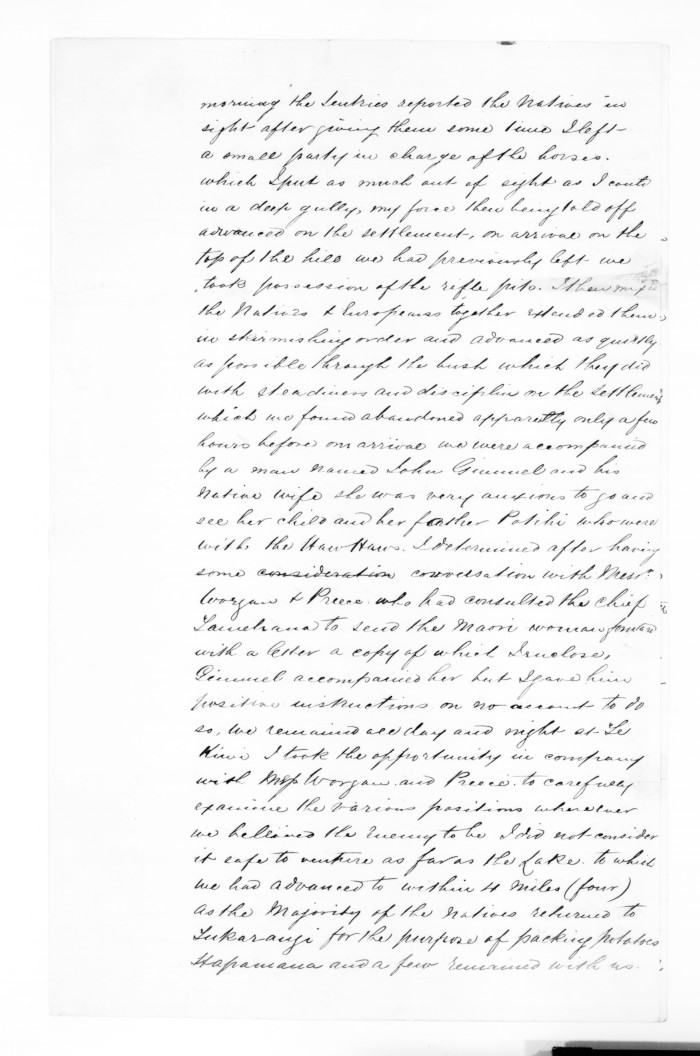 morning the Sentries reported the Natives in
sight after giving them some time I left
a small party in charge of the horses.
which I put as much out of sight as I could
in a deep gully, my force then being told off
advanced on the settlement, on arrival on the
top of the hill we had previously left we
took possession of the rifle pits. I then
the Natives & Europeans together extended them
in skirmishing order and advanced as quietly
as possible through the bush which they did
with steadiness and disciplin on the settlement
which we found abandoned apparetly only a few
hours before our arrival we were accompanied
by a man named John Gimmel and his
Native wife she was very anxious to go and
see her child and her father Potiki who were
with the Hau Haus. I determined after having
some consideration conversation with Messrs.
Worgan & Preece who had consulted the chief
to send the Maori woman forward
with a letter a copy of which I enclose,
Gimmel accompanied her but I gave him
positive instructions on no account to do
so, we remained all day and night at Te
Kiwi I took the opportunity in company
with Worgan and Preece to carefully
examine the various positions where ever
we believed the Enemy to be I did not consider
it safe to venture as far as the Lake. to which
we had advanced to within 4 miles (four)
as the Majority of the Natives returned to
Tukarangi for the purpose of packing potatoes
Hapamana and a few remained with us.